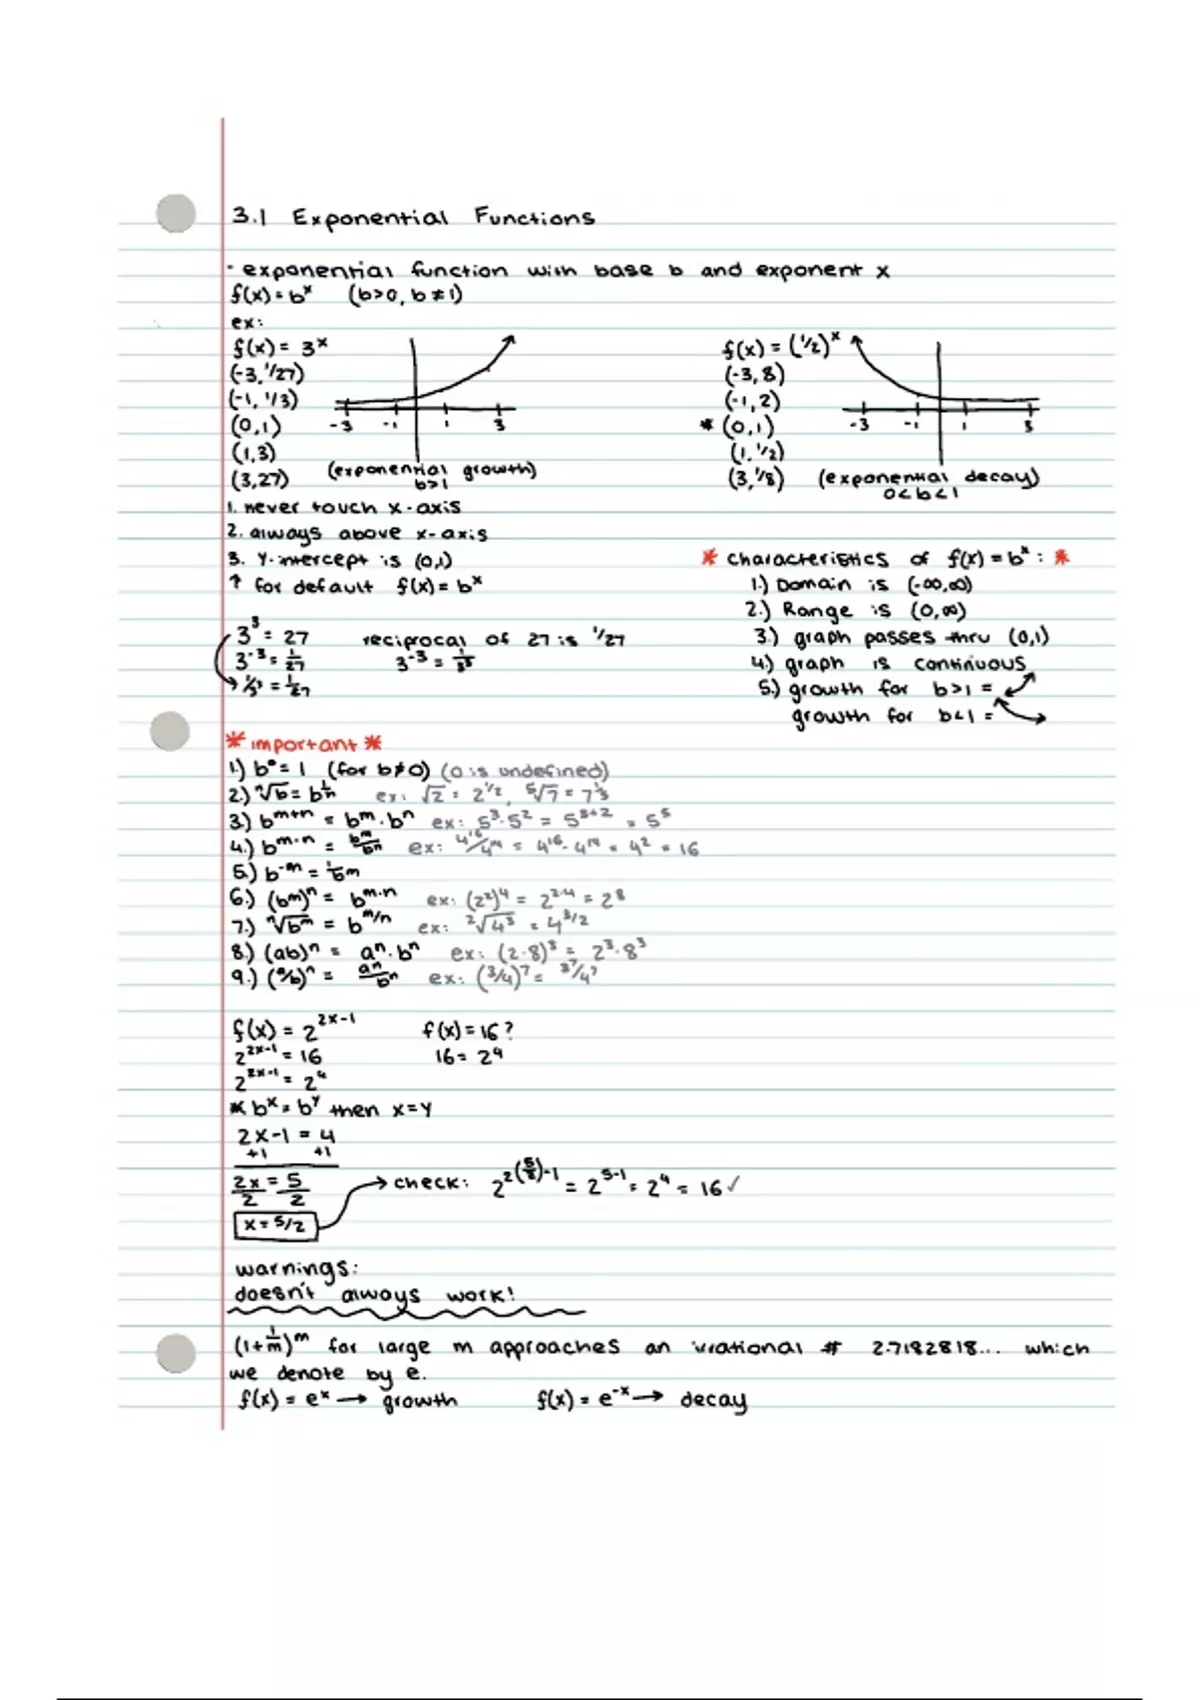 3.1 Exponential Functions
· exponential function with base b and exponent x
f(x) = bˣ (b>0, b≠1)
ex:
f(x) = 3ˣ
(-3, 1/27)
(-1, 1/3)
(0,1)
(1,3)
(3,27)
-3 -1 1 3
(exponential growth)
b>1
f(x) = (1/2)ˣ
(-3, 8)
(-1, 2)
* (0,1)
(1, 1/2)
(3, 1/8)
-3 -1 1 3
(exponential decay)
0<b<1
1. never touch x-axis
2. always above x-axis
3. Y-intercept is (0,1)
↑ for default f(x) = bˣ
3³ = 27 reciprocal of 27 is 1/27
3⁻³ = 1/27 3⁻³ = 1/3³
→ 1/3³ = 1/27
* characteristics of f(x) = bˣ : *
1.) Domain is (-∞,∞)
2.) Range is (0,∞)
3.) graph passes thru (0,1)
4.) graph is continuous
5.) growth for b>1 =
growth for b<1 =
* important *
1.) b⁰ = 1 (for b≠0) (0 is undefined)
2.) ⁿ√b = b^1/n ex: √2 = 2^1/2, ⁵√7 = 7^1/5
3.) b^m+n = b^m · b^n ex: 5³·5² = 5^3+2 = 5⁵
4.) b^m-n = b^m/b^n ex: 4¹⁶/4¹⁴ = 4¹⁶-4¹⁴ = 4² = 16
5.) b^-m = 1/b^m
6.) (b^m)^n = b^m·n ex: (2²)⁴ = 2^2·4 = 2⁸
7.) ⁿ√b^m = b^m/n ex: ²√4³ = 4^3/2
8.) (ab)^n = a^n · b^n ex: (2·8)³ = 2³·8³
9.) (a/b)^n = a^n/b^n ex: (3/4)⁷ = 3⁷/4⁷
f(x) = 2^2x-1 f(x) = 16?
2^2x-1 = 16 16 = 2⁴
2^2x-1 = 2⁴
* bˣ = b^y then x=y
2x-1 = 4
+1 +1
2x/2 = 5/2
x = 5/2
→ check: 2^2(5/2)-1 = 2^5-1 = 2⁴ = 16 ✓
warnings:
doesn't always work!
(1+1/m)^m for large m approaches an irrational # 2.7182818... which
we denote by e.
f(x) = eˣ → growth f(x) = e⁻ˣ → decay